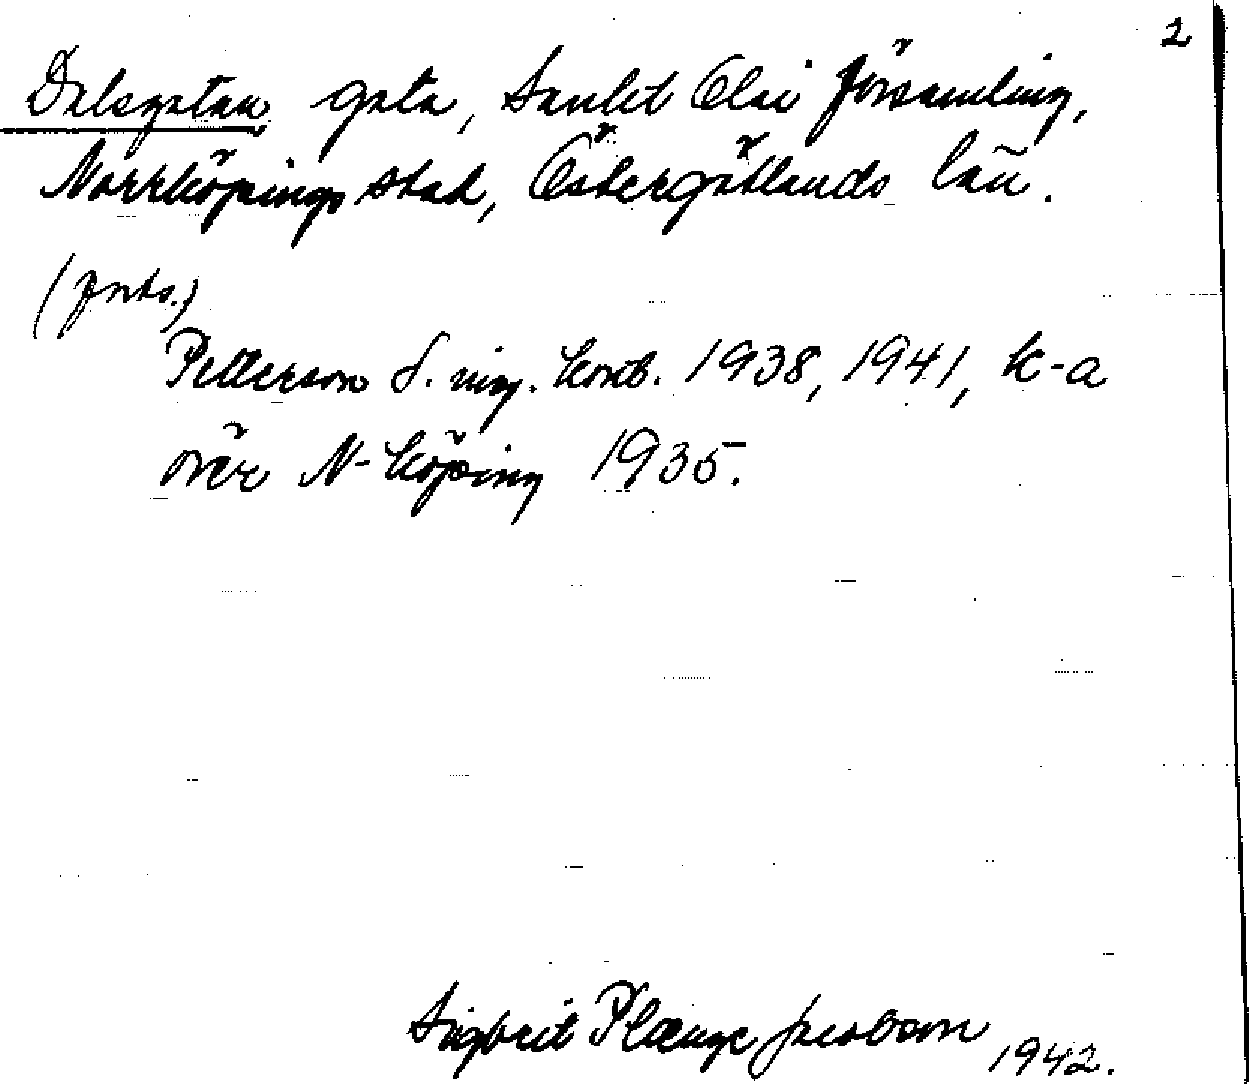 2
Dalsgatan gata, Sankt Olai församling,
Norrköpings stad, Östergötlands län.
(forts.)
Petterson S. ing. kont. 1938, 1941, k-a
över N-köping 1935.
Sigbrit Plænge Jacobson 1942.